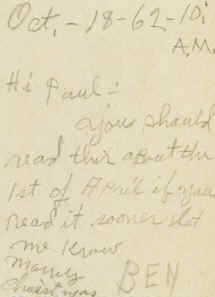 Oct. - 18 - 62 - 10:
A.M.
Hi Paul :
you should
read this about the
1st of April if you
read it sooner
me know
Marry
Christmas
BEN